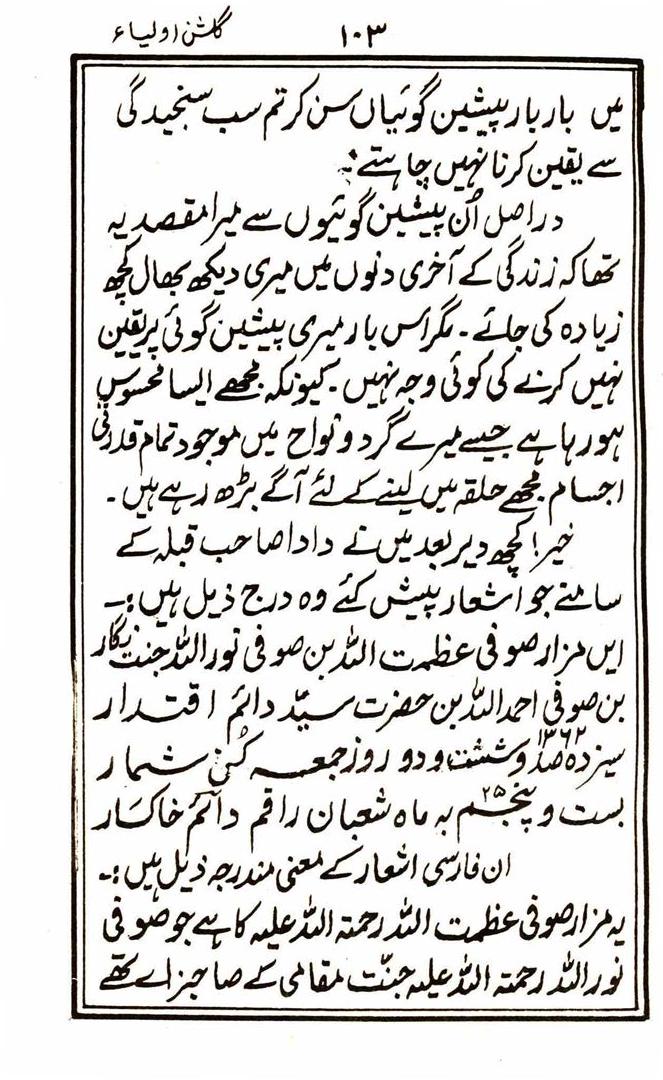 گلشن اولیاء ۱۰۳
میں بار بار پیشین گوئیاں سن کر تم سب سنجیدگی
سے یقین کرنا نہیں چاہتے۔
در اصل اُن پیشین گوئیوں سے میرا مقصد یہ
تھا کہ زندگی کے آخری دنوں میں میری دیکھ بھال کچھ
زیادہ کی جائے۔ مگر اس بار میری پیشین گوئی پر یقین
نہیں کرنے کی کوئی وجہ نہیں۔ کیونکہ مجھے ایسا محسوس
ہو رہا ہے جیسے میرے گرد و نواح میں موجود تمام قدرتی
اجسام مجھے حلقہ میں لینے کے لئے آگے بڑھ رہے ہیں۔
خیر! کچھ دیر بعد میں نے دادا صاحب قبلہ کے
سامنے جو اشعار پیش کئے وہ درج ذیل ہیں:۔
ایں مزار صوفی عظمت اللہ بن صوفی نور اللہ جنت نگار
بن صوفی احمد اللہ بن حضرت سیّد دائم اقتدار
سیزدہ صد و ششت و دو ۱۳۶۲ روز جمعہ کُن شمار
بست و پنجم ۲۵ بہ ماہ شعبان راقم دائم خاکسار
ان فارسی اشعار کے معنی مندرجہ ذیل ہیں:۔
یہ مزار صوفی عظمت اللہ رحمتہ اللہ علیہ کا ہے جو صوفی
نور اللہ رحمتہ اللہ علیہ جنّت مقامی کے صاحبزادے تھے